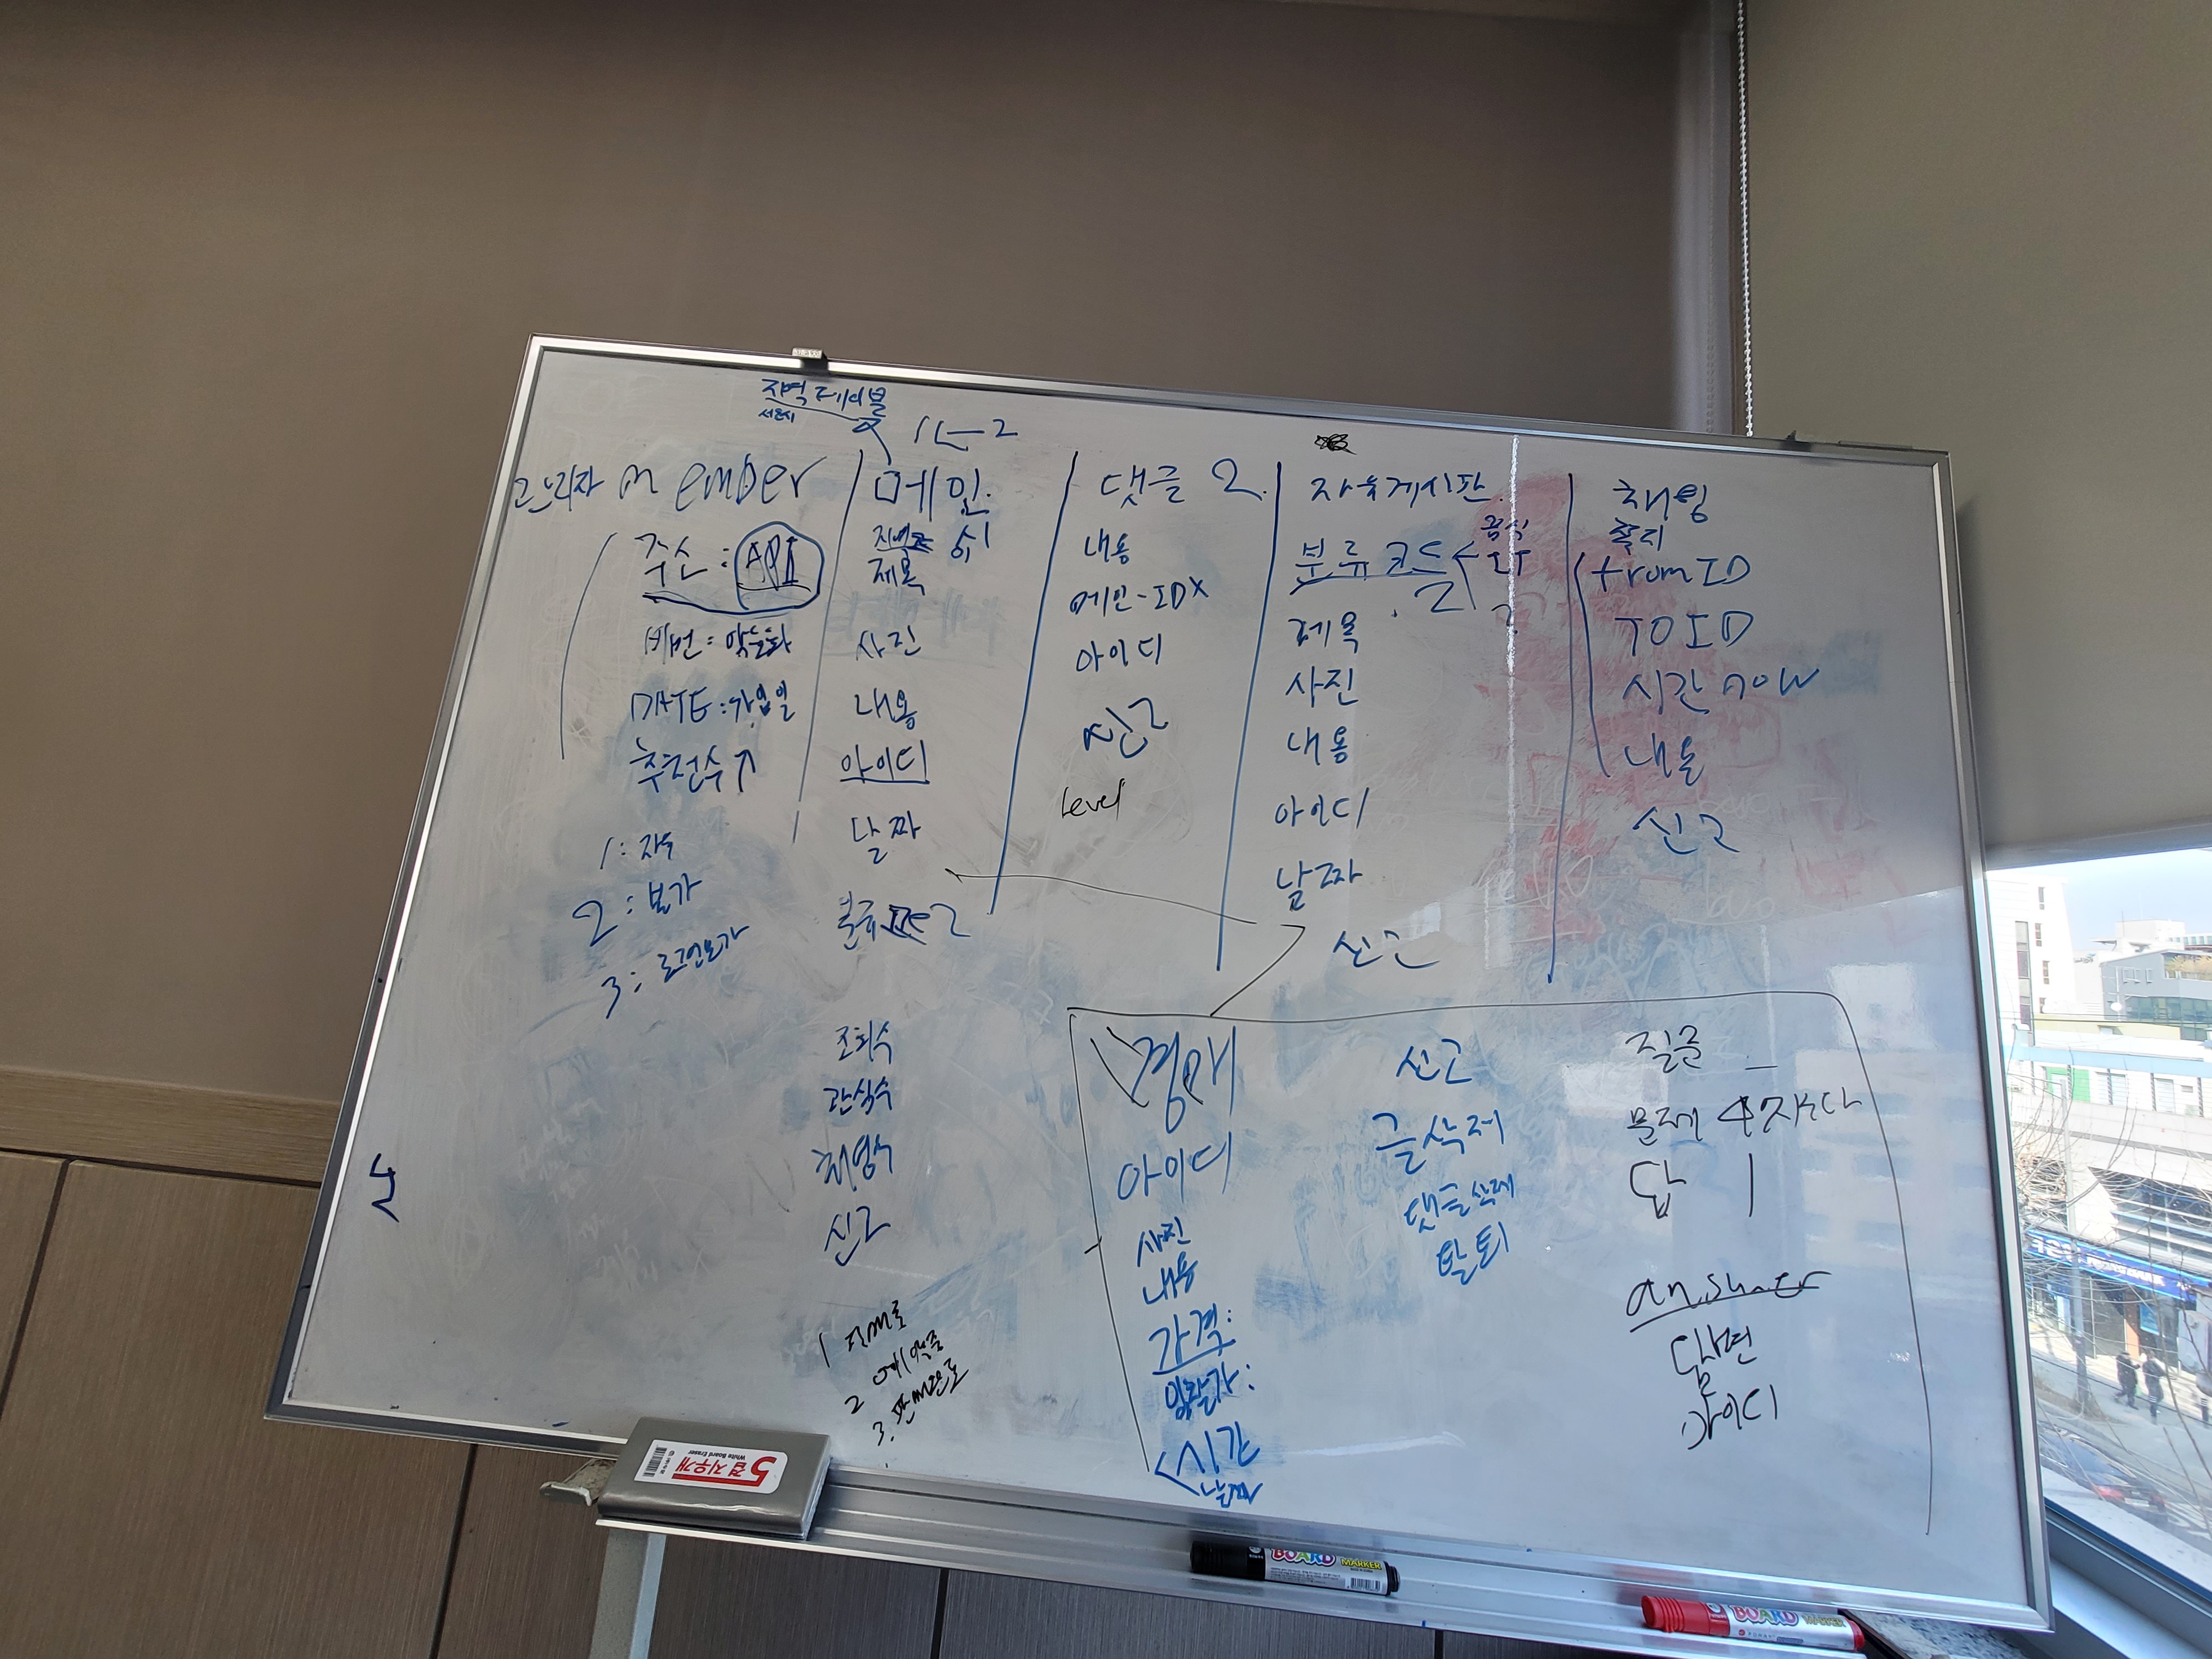 지역 테이블
서울시
1 ← 2
관리자 member
주소 : API
비번 : 암호화
DATE : 가입일
추천수 ↑
1 :
2 : 불가
3 :
메인
제목
사진
내용
아이디
날짜
분류 2
조회수
관심수
신고
2 예약중
댓글 2
내용
메인-IDX
아이디
신고
level
자유게시판
분류코드 ←
2
제목
사진
내용
아이디
날짜
신고
채팅
쪽지
from ID
TO ID
시간 now
내용
신고
경매
아이디
사진
내용
가격:
입찰가:
시간
날짜
신고
글삭제
댓글삭제
탈퇴
질문
문제 4
답 1
answer
답변
아이디
5
겹 지우개
White Board Eraser
BOARD MARKER
BOARD MARKER